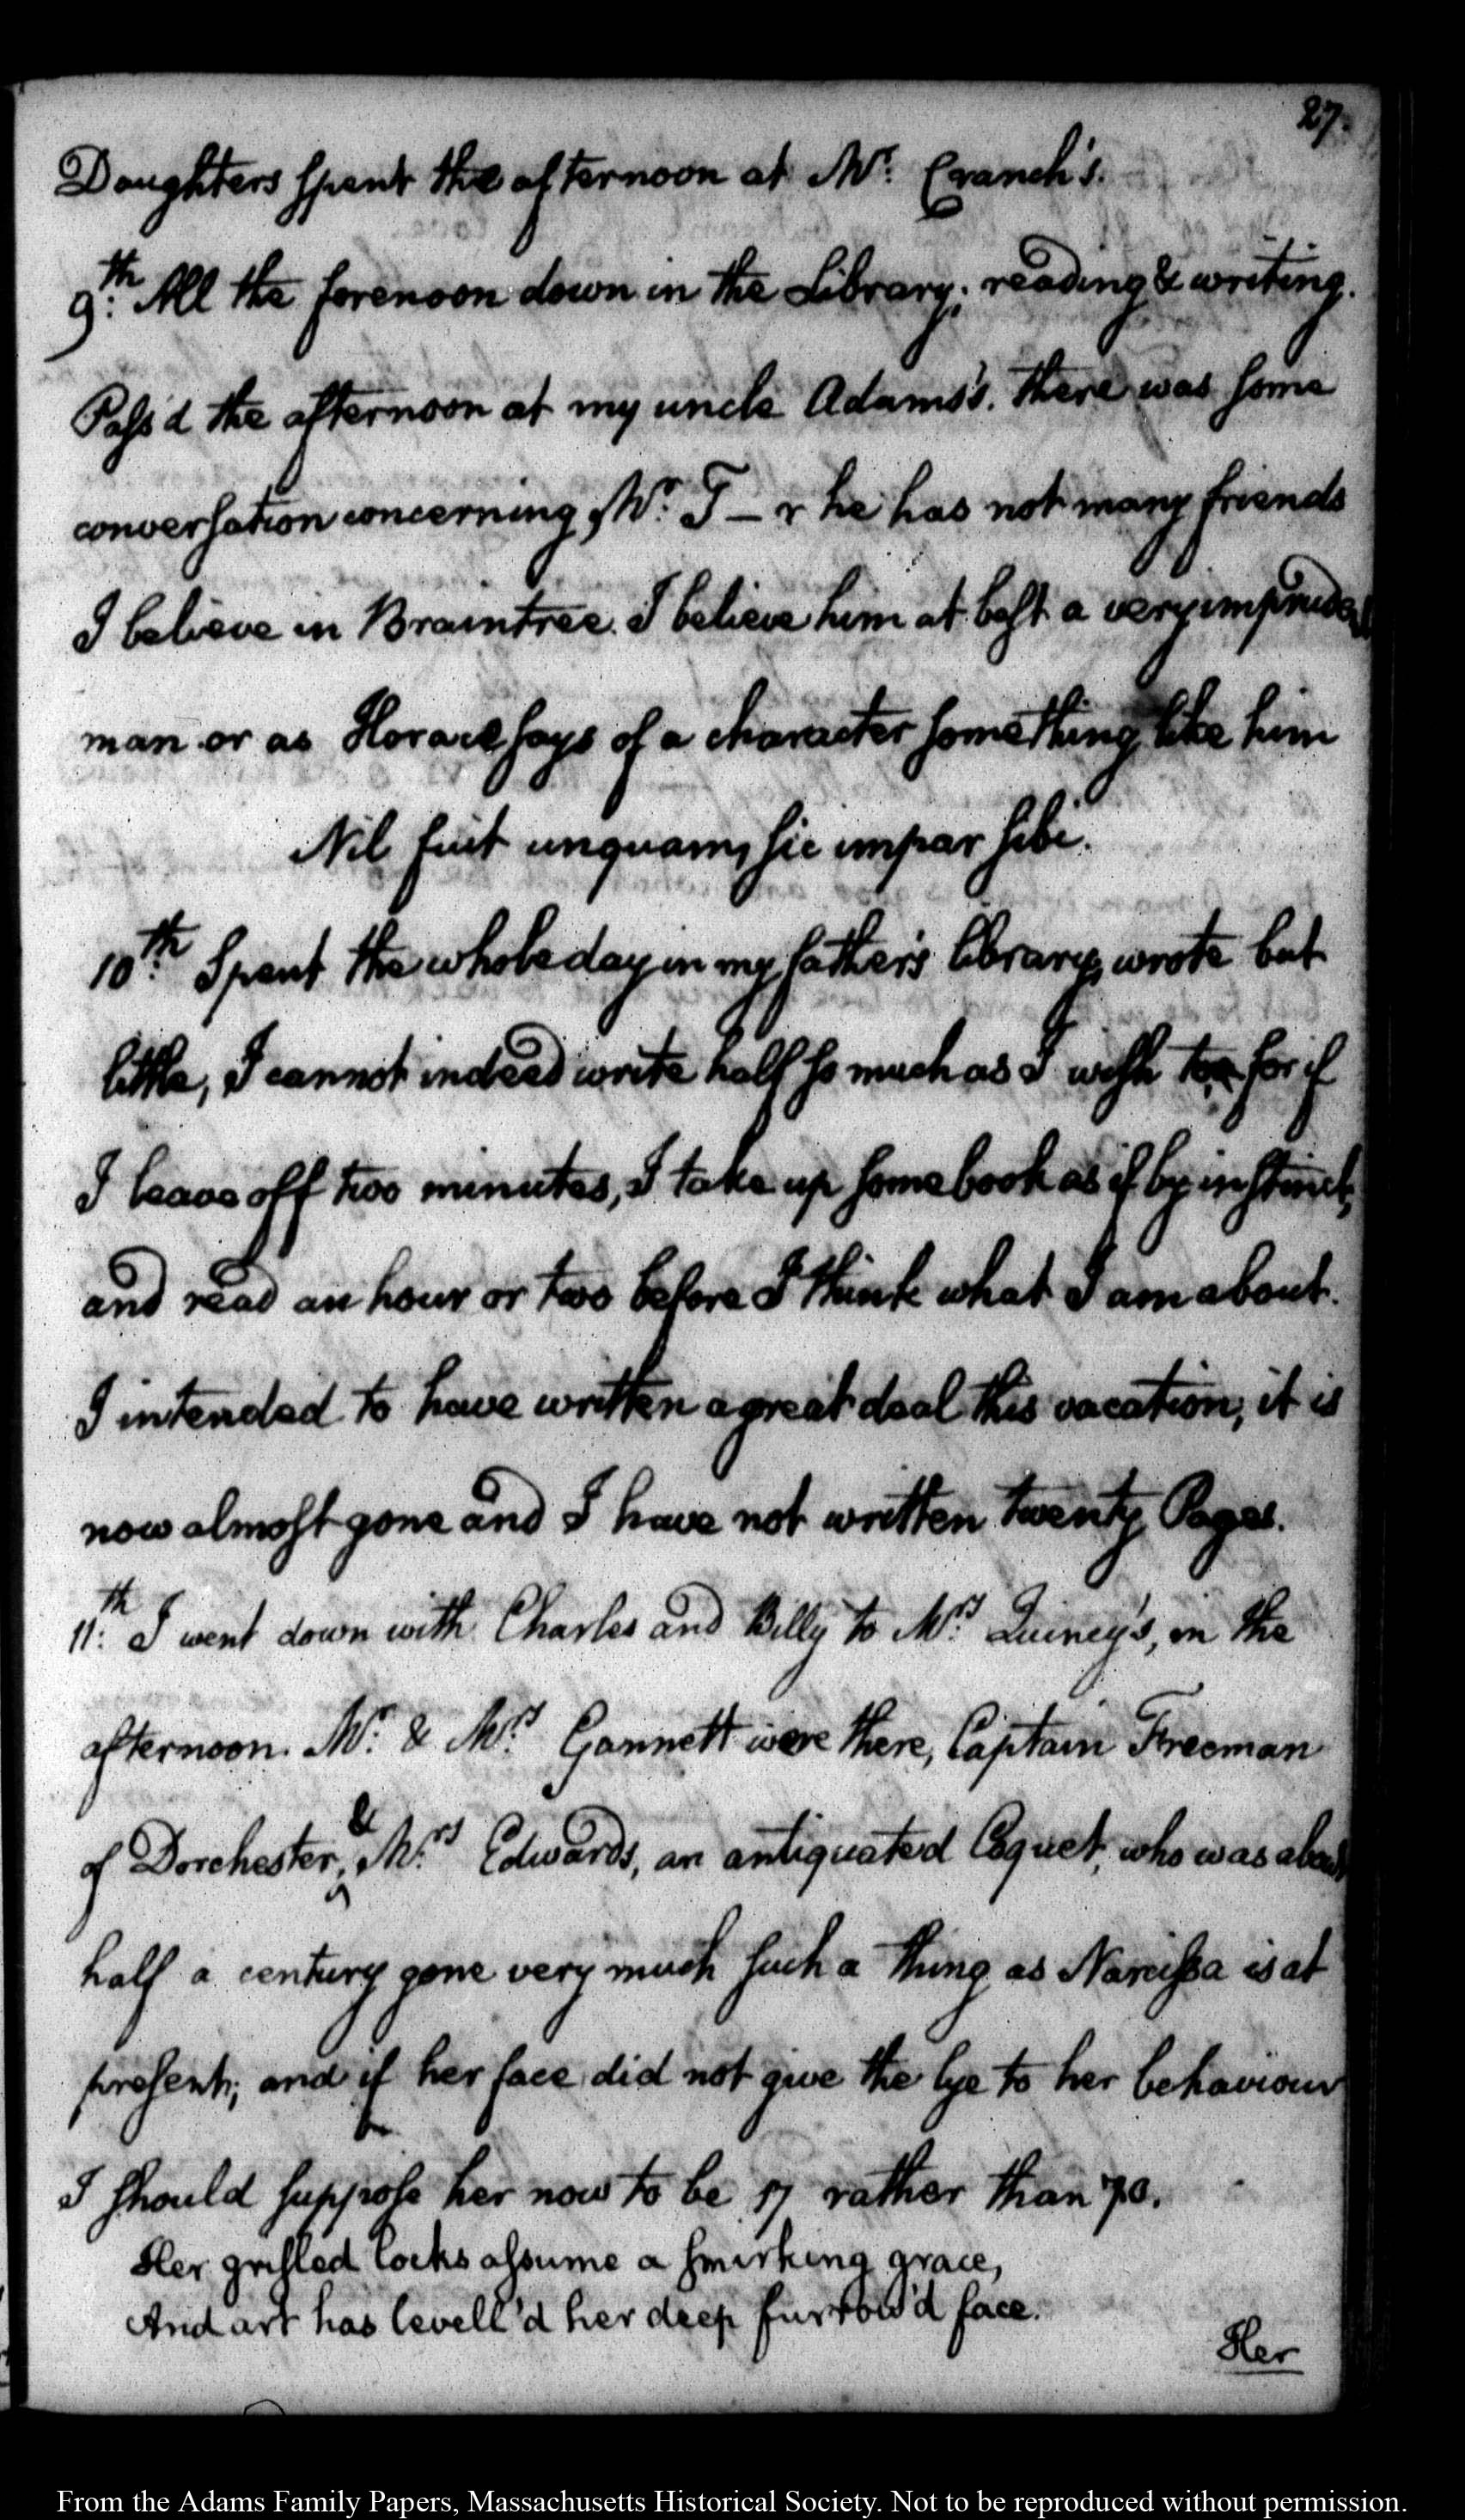 27.
Daughters spent the afternoon at Mr: Cranch's.
9th: All the forenoon down in the Library; reading & writing.
Pass'd the afternoon at my uncle Adams's. there was some
conversation concerning Mr: T—r he has not many friends
I believe in Braintree. I believe him at best a very imprudent
man or as Horace says of a character something like him
Nil fuit unquam, sic impar sibi.
10th: Spent the whole day in my father's library, wrote but
little, I cannot indeed write half so much as I wish to, for if
I leave off two minutes, I take up some book as if by instinct,
and read an hour or two before I think what I am about.
I intended to have written a great deal this vacation; it is
now almost gone and I have not written twenty Pages.
11th: I went down with Charles and Billy to Mrs: Quincy's, in the
afternoon. Mr: & Mrs: Gannett were there, Captain Freeman
of Dorchester, & Mrs: Edwards, an antiquated Coquet, who was about
half a century gone very much such a thing as Narcissa is at
present; and if her face did not give the lye to her behaviour
I should suppose her now to be 17 rather than 70.
Her grisled locks assume a smirking grace,
And art has levell'd her deep furrow'd face.
Her
From the Adams Family Papers, Massachusetts Historical Society. Not to be reproduced without permission.